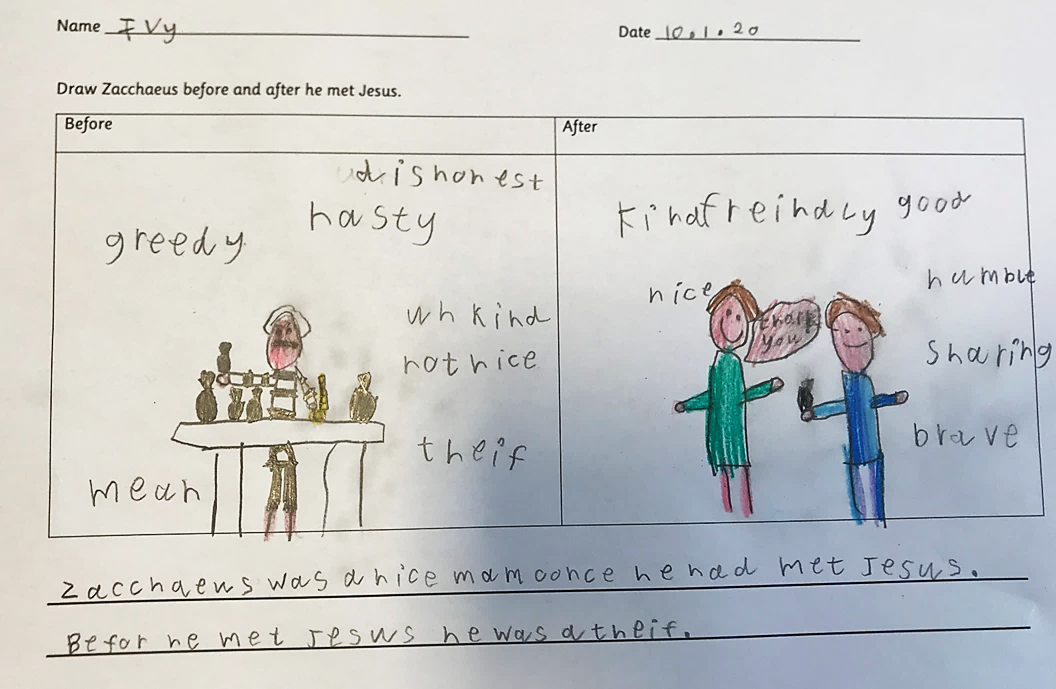 Name Ivy Date 10.1.20
Draw Zacchaeus before and after he met Jesus.
Before After
dishonest
nasty
greedy
unkind
not nice
theif
mean
kind freindly good
nice
humble
thank
you
sharing
brave
Zacchaeus was a nice mam conce he had met Jesus.
Befor he met Jesus he was a theif.